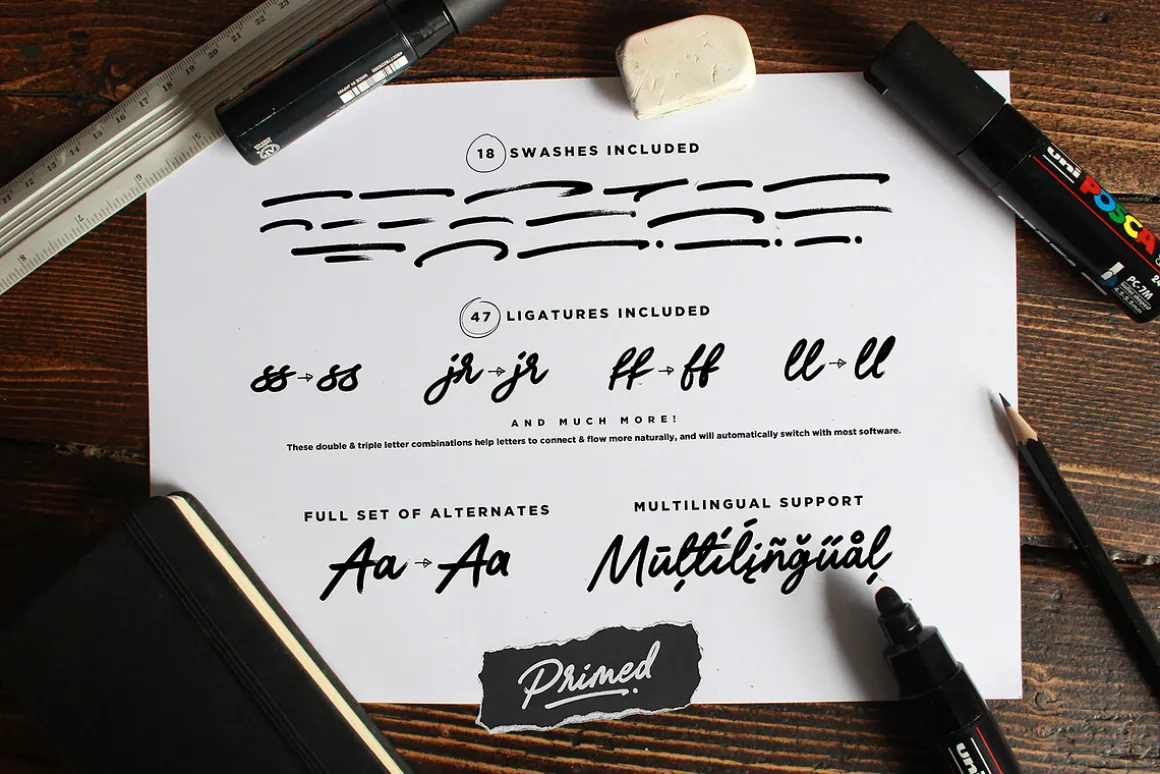 18 SWASHES INCLUDED
47 LIGATURES INCLUDED
ss → ss
jr → jr
ff → ff
ll → ll
AND MUCH MORE!
These double & triple letter combinations help letters to connect & flow more naturally, and will automatically switch with most software.
FULL SET OF ALTERNATES
Aa → Aa
MULTILINGUAL SUPPORT
Primed
uni POSCA
PC-7M
uni
11 12 13 14 15 16 17 18 19 20 21 22 23
MADE IN JAPAN